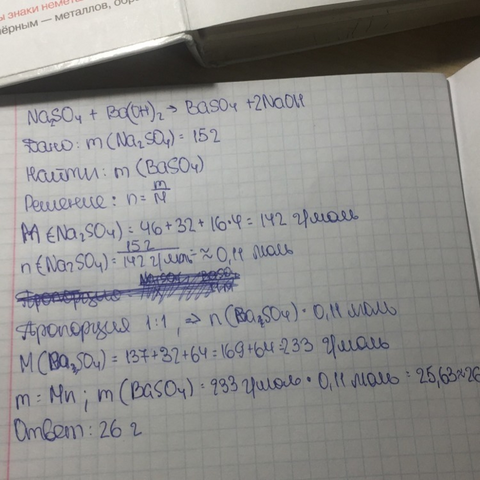 ы знаки немета
чёрным — металлов, обра
Na₂SO₄ + Ba(OH)₂ → BaSO₄ + 2NaOH
Дано: m(Na₂SO₄) = 15г
Найти: m(BaSO₄)
Решение: n = m/M
M(Na₂SO₄) = 46+32+16·4 = 142 г/моль
n(Na₂SO₄) = 15г/142 г/моль = ≈ 0,11 моль
Пропорция 1:1, ⇒ n(Ba₂SO₄) · 0,11 моль
M(Ba₂SO₄) = 137+32+64 = 169+64 = 233 г/моль
m = Mn ; m(BaSO₄) = 233 г/моль · 0,11 моль = 25,63 ≈ 26
Ответ: 26 г